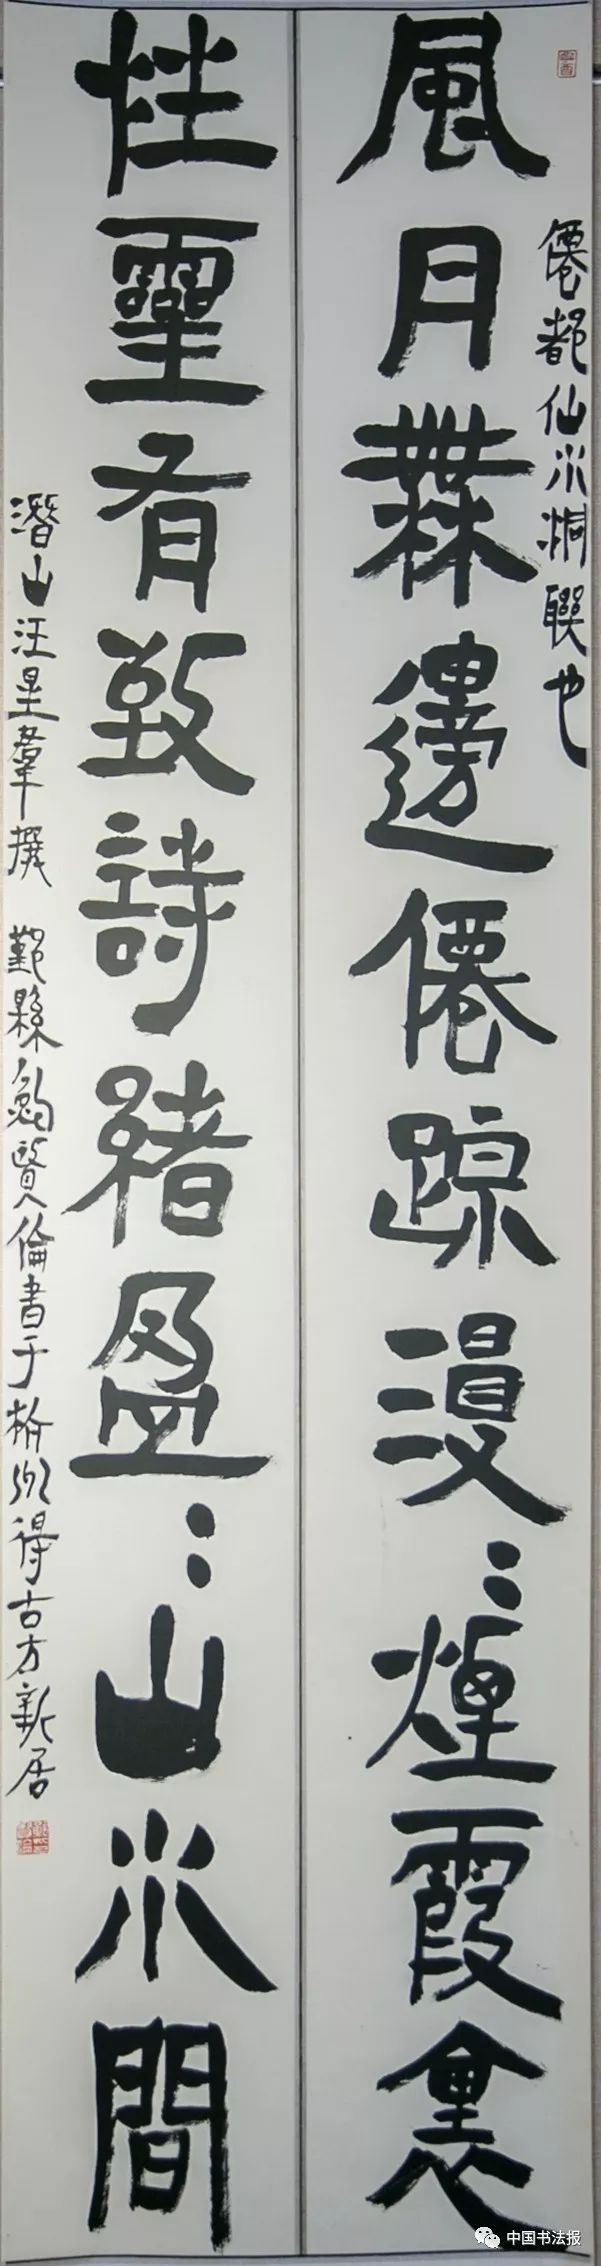 風月無邊僊踪漫：煙霞裏
僊都仙水洞聯也
性靈有致詩緒盈：山水間
潛山汪星羣撰 鄞縣鄔賢倫書于
得古方新居
中国书法报